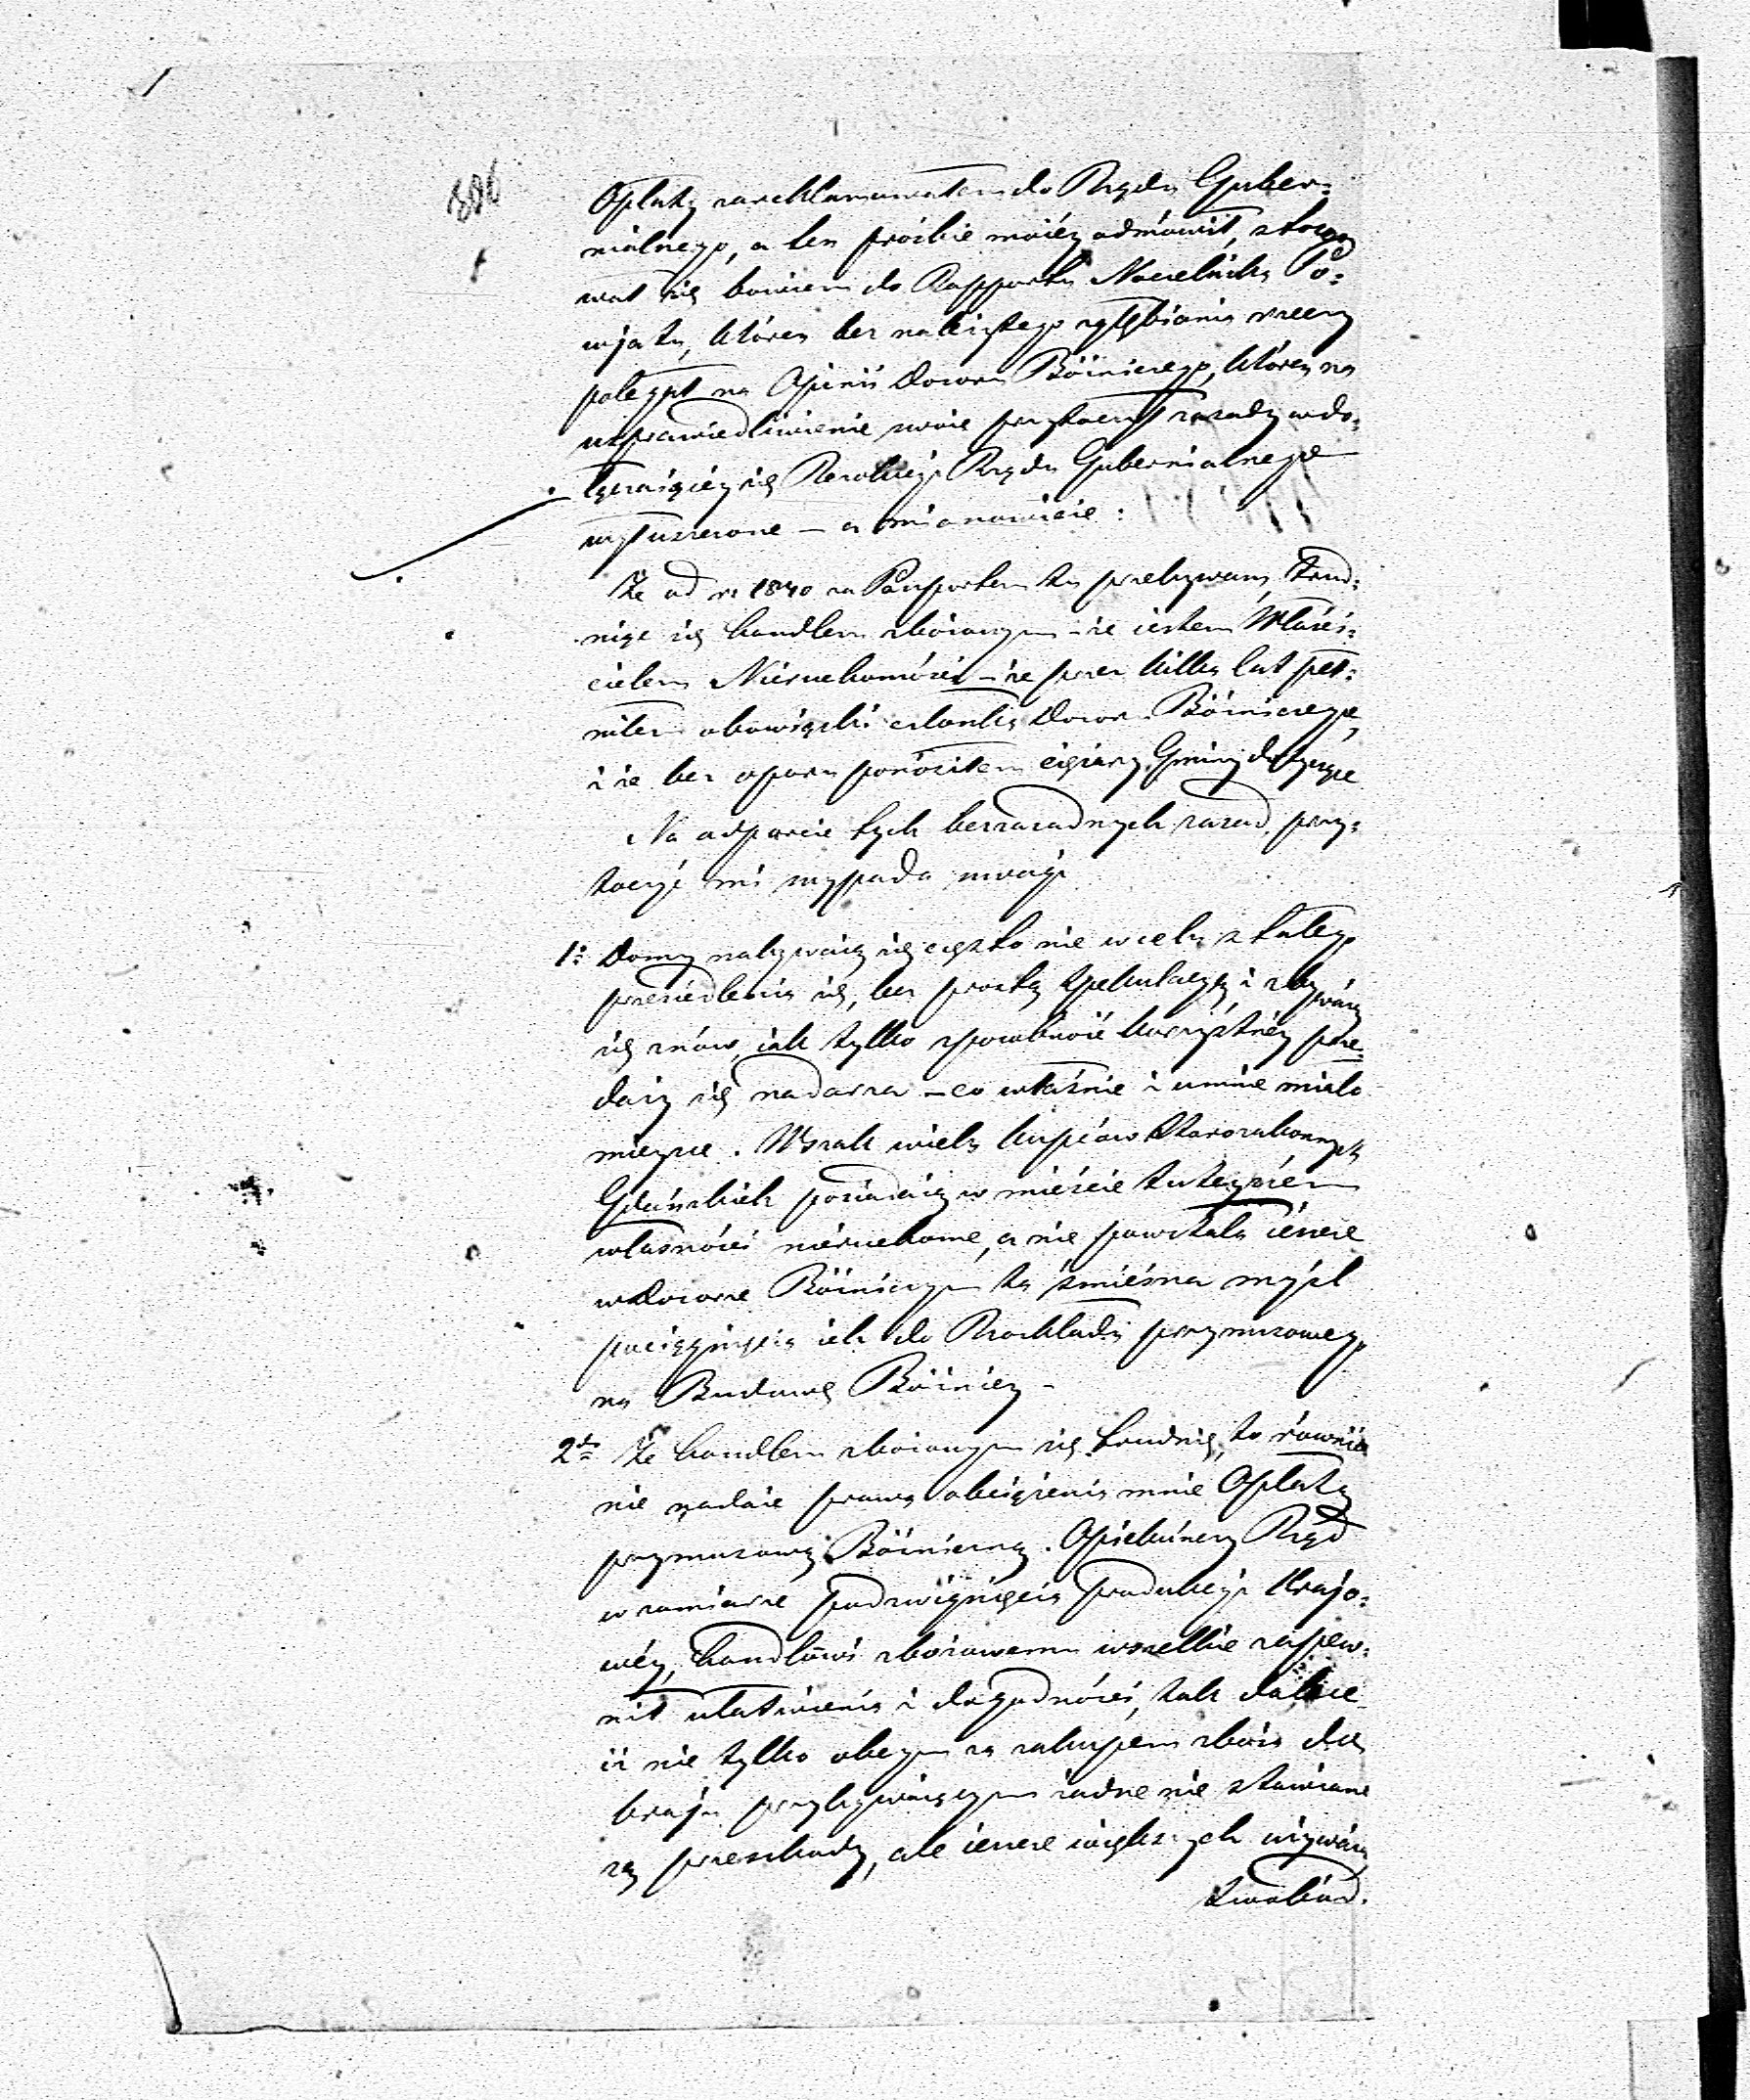 Opłatę zareklamowałem do Rządu Guber=
nialnego, a ten prośbie moiéy odmówił, stoso
wał się bowiem do Rapportu Naczelnika Po=
wjatu, który bez należytego zgłębiania rzeczy
polegał na Opinii Dozoru Bóżniczego, który na
usprawiedliwienie swoie przytoczył zasady w do=
łączaiącéy się Rezolucyi Rządu Gubernialnego
wyłuszczone – a mianowicie:
Że od r. 1840 za Paszportem tu przebywam, trud=
niąc się handlem zbożowym – że iestem Właści=
cielem Nieruchomości – że przez kilka lat peł=
niłem obowiązki członka Dozoru Bóżniczego,
i że bez oporu ponosiłem ciężary Gminy dotyczące
Na odparcie tych bezzasadnych zasad, przy=
toczyć mi wypada uwagi
1o Domy nabywaią się często nie w celu stałego
przesiedlenia się, lecz prostą spekulacyą i zbywaią
się znów, iak tylko sposobność korzystnéy prze=
daży się nadarza – co właśnie i u mnie miało
mieysce. Wszak wielu kupców Starozakonnych
Gdańskich posiadaią w mieście tuteyszém
własności nieruchome, a nie powstała ieszcze
w Dozorze Bóżniczym ta śmieszna myśl
pociągnięcia ich do Rozkładu przymusowego
na Budowę Bóżnicy –
2do Że handlem zbożowym się trudnię, to równie
nie nadaie prawa obciążenia mnie Opłatą
przymusową Bóżniczną. Opiekuńczy Rząd
w zamiarze podzwignięcia produkcyi krajo=
wéy, handlowi zbożowemu wszelkie zapew=
nił ułatwienia i dogodności, tak dalece
iż nie tylko obcym za zakupem zboża do
kraju przybywaiącym żadne nie stawiane
są przeszkody, ale ieszcze większych używaią
swobód.